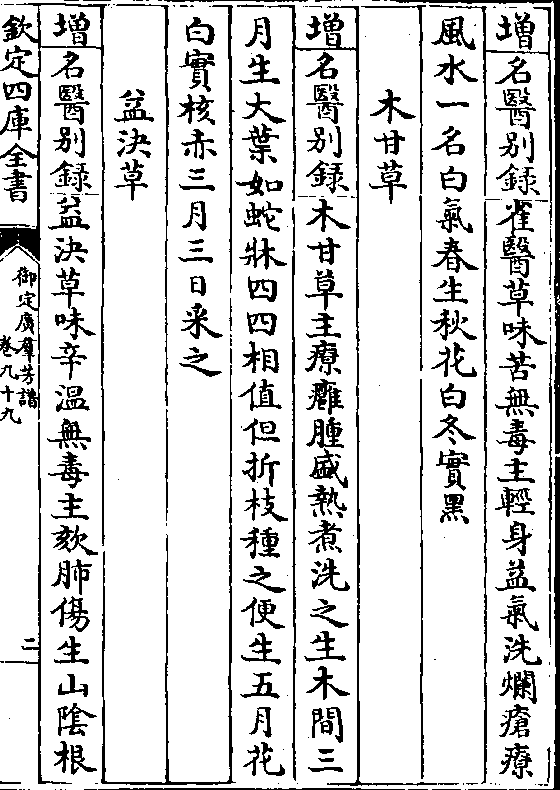 增名醫别録雀醫草味苦無毒主輕身益氣洗爛瘡療
風水一名白氣春生秋花白冬實黒
木甘草
增名醫别録木甘草主療癰腫盛熱煮洗之生木間三
月生大葉如蛇牀四四相值但折枝種之便生五月花
白實核赤三月三日采之
益決草
增名醫别録益決草味辛溫無毒主欬肺傷生山隂根
欽定四庫全書
御定廣羣芳譜
卷九十九
二